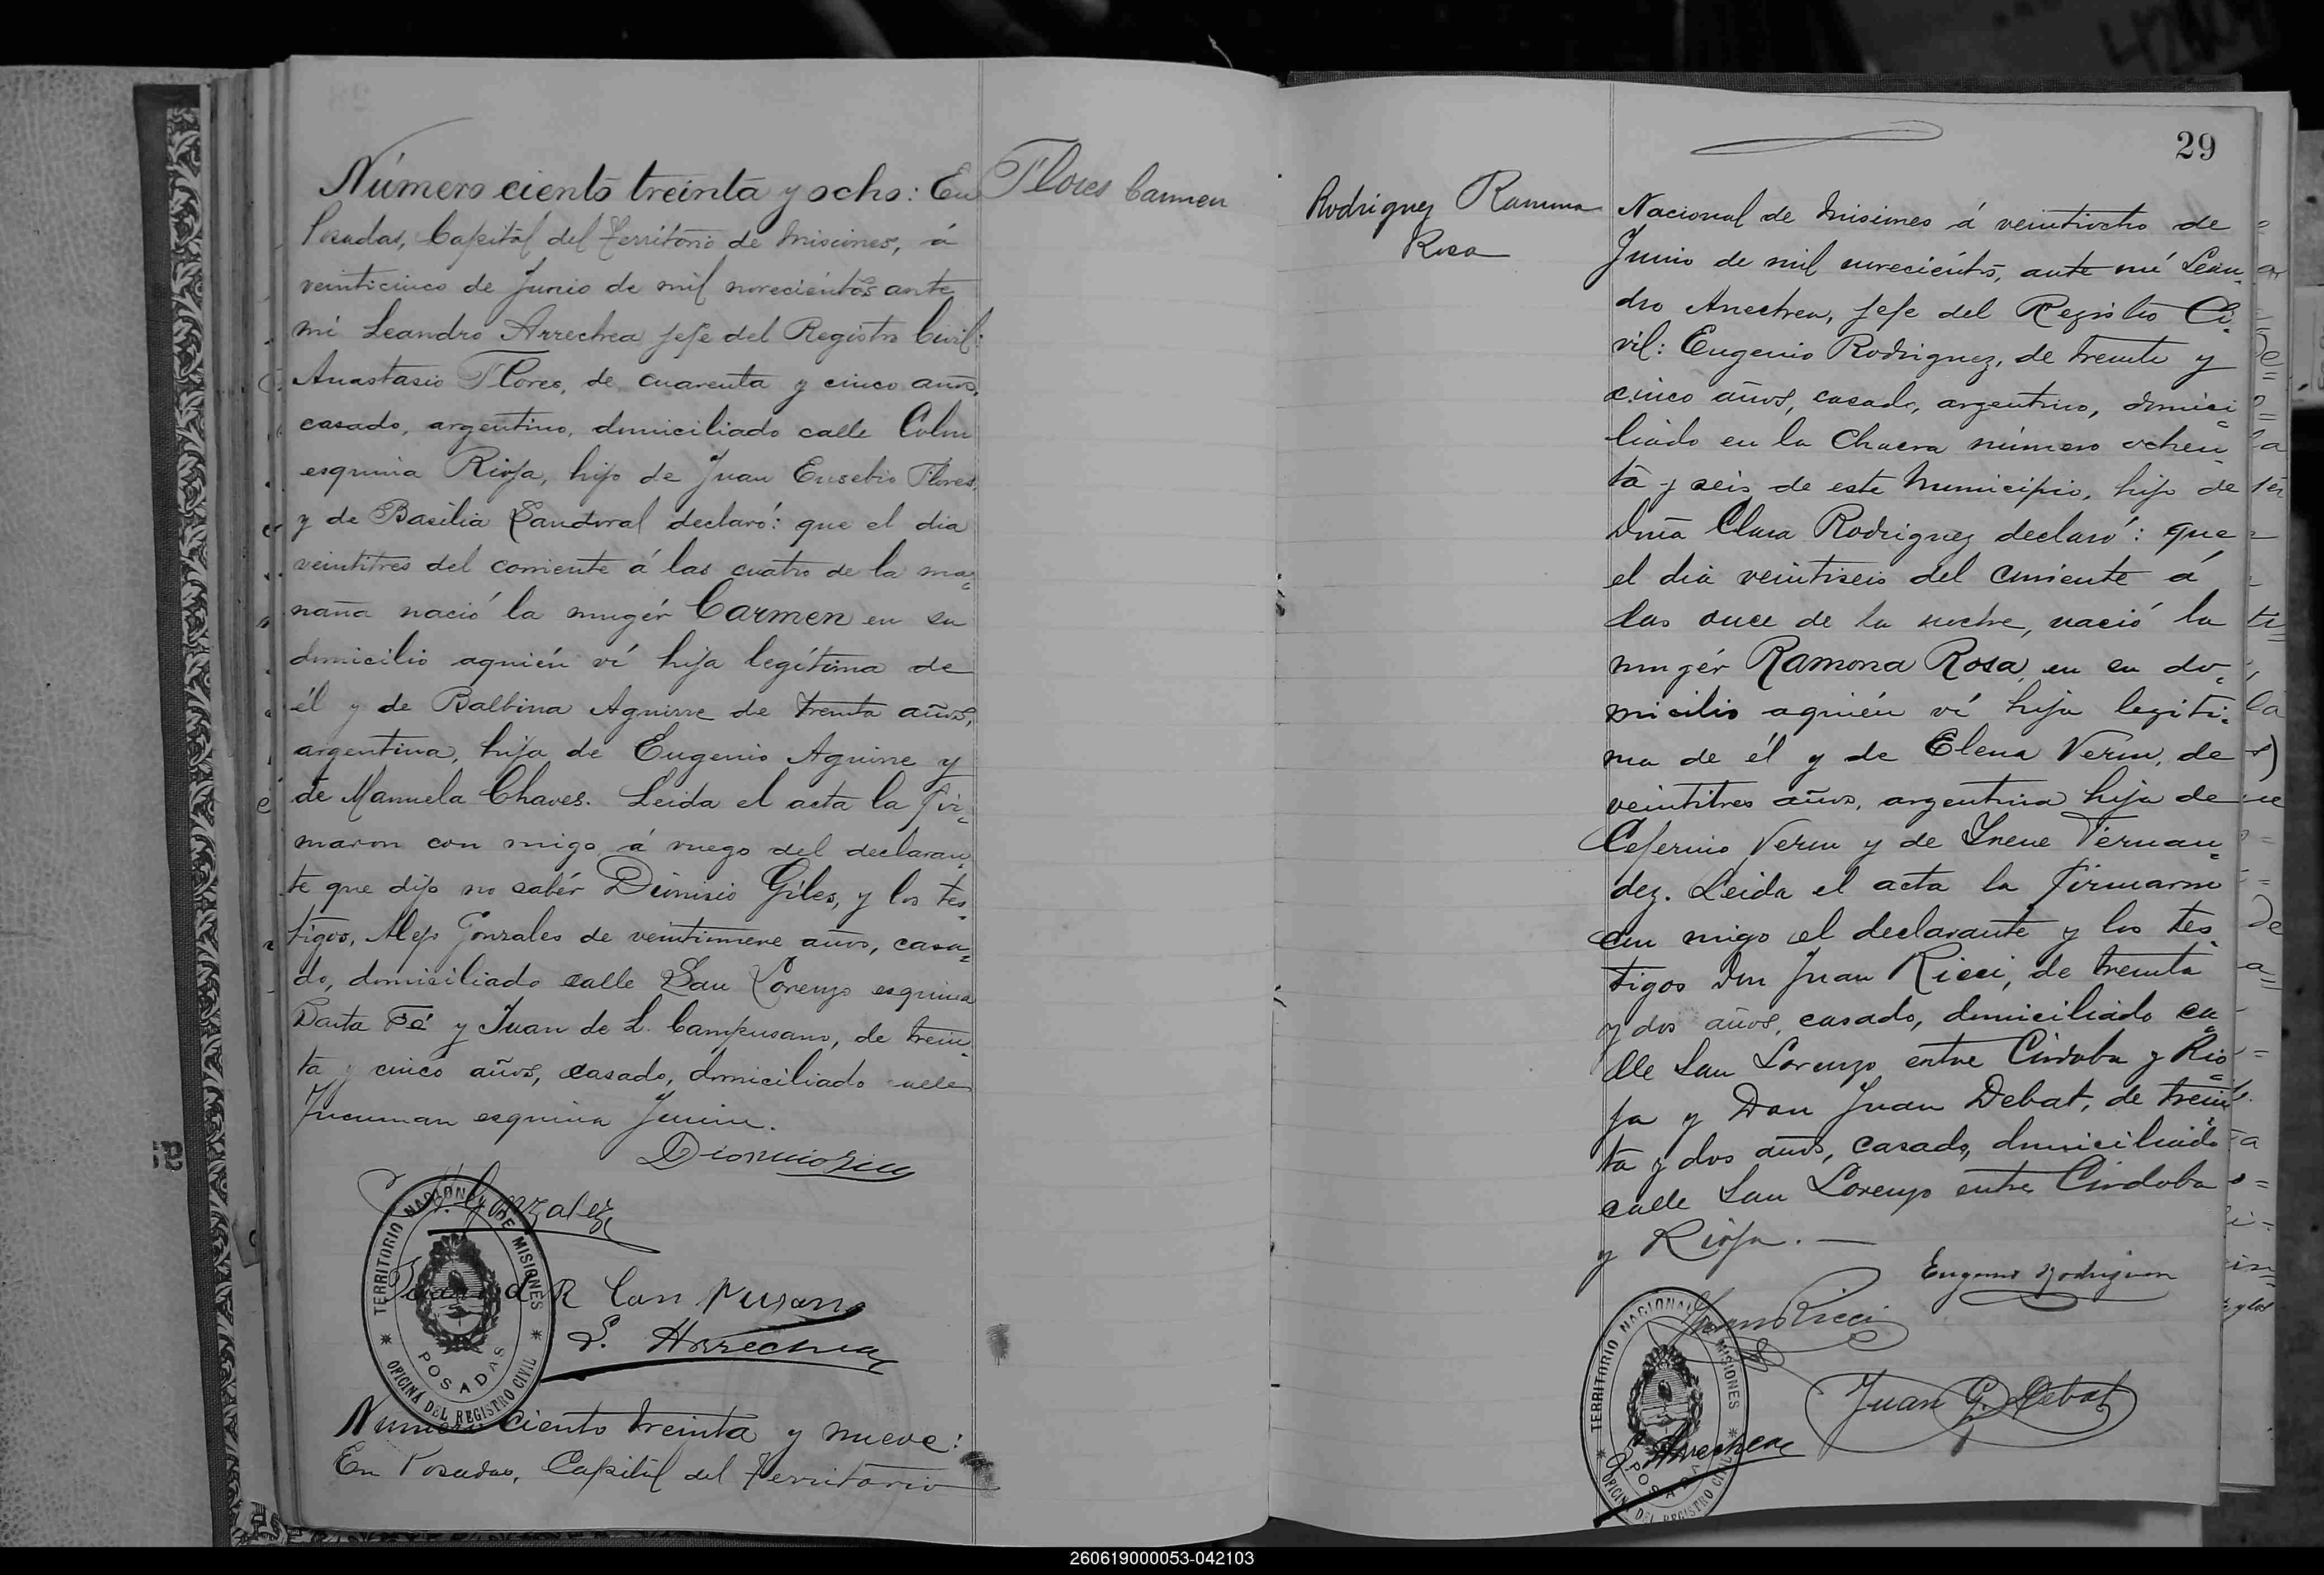 Número ciento treinta y ocho: En
Posadas, Capital del Territorio de Misiones, á
veinticinco de Junio de mil novecientos ante
mi Leandro Arrechea jefe del Registro Civil:
Anastasio Flores, de cuarenta y cinco años,
casado, argentino, domiciliado calle Colon
esquina Rioja, hijo de Juan Eusebio Flores,
y de Basilia Sandoval declaró: que el dia
veintitres del corriente á las cuatro de la ma=
ñana nació la mugér Carmen en su
domicilio aquién ví hija legítima de
él y de Balbina Aguirre de treinta años,
argentina, hija de Eugenio Aguirre y
de Manuela Chaves. Leida el acta la fir=
maron con migo, á ruego del declaran=
te que dijo no sabér Dionisio Giles, y los tes=
tigos, Alejo Gonzales de veintinueve años, casa=
do, domiciliado calle San Lorenzo esquina
Santa Fé y Juan de L. Campusano, de trein=
ta y cinco años, casado, domiciliado calle
Tucuman esquina Junin.
Dionicio Giles
A. Gonzalez
Juan d R Can pusano
L. Arrechea
TERRITORIO NACIONAL DE MISIONES
POSADAS
* OFICINA DEL REGISTRO CIVIL *
Numero ciento treinta y nueve:
En Posadas, Capital del Territorio
Flores Carmen
29
Rodriguez Ramona
Rosa
Nacional de Misiones á veintiocho de
Junio de mil novecientos, ante mí Lean=
dro Arrechea, jefe del Registro Ci=
vil: Eugenio Rodriguez, de treinta y
cinco años, casado, argentino, domici=
liado en la Chacra número ochen=
ta y seis de este Municipio, hijo de
Doña Clara Rodriguez declaró: que
el dia veintiseis del corriente á
las once de la noche, nació la
mugér Ramona Rosa, en su do=
micilio aquién ví hija legíti=
ma de él y de Elena Veron, de
veintitres años, argentina hija de
Ceferino Veron y de Irene Fernan=
dez. Leida el acta la firmaron
con migo el declarante y los tes=
tigos Don Juan Ricci, de treinta
y dos años, casado, domiciliado ca=
lle San Lorenzo entre Córdoba y Rio=
ja y Don Juan Debat, de trein=
ta y dos años, casado, domiciliado
calle San Lorenzo entre Córdoba
y Rioja. —
Eugenio Rodriguez
Juan Ricci
Juan G. Debat
L. Arrechea
TERRITORIO NACIONAL DE MISIONES
POSADAS
* OFICINA DEL REGISTRO CIVIL *
260619000053-042103